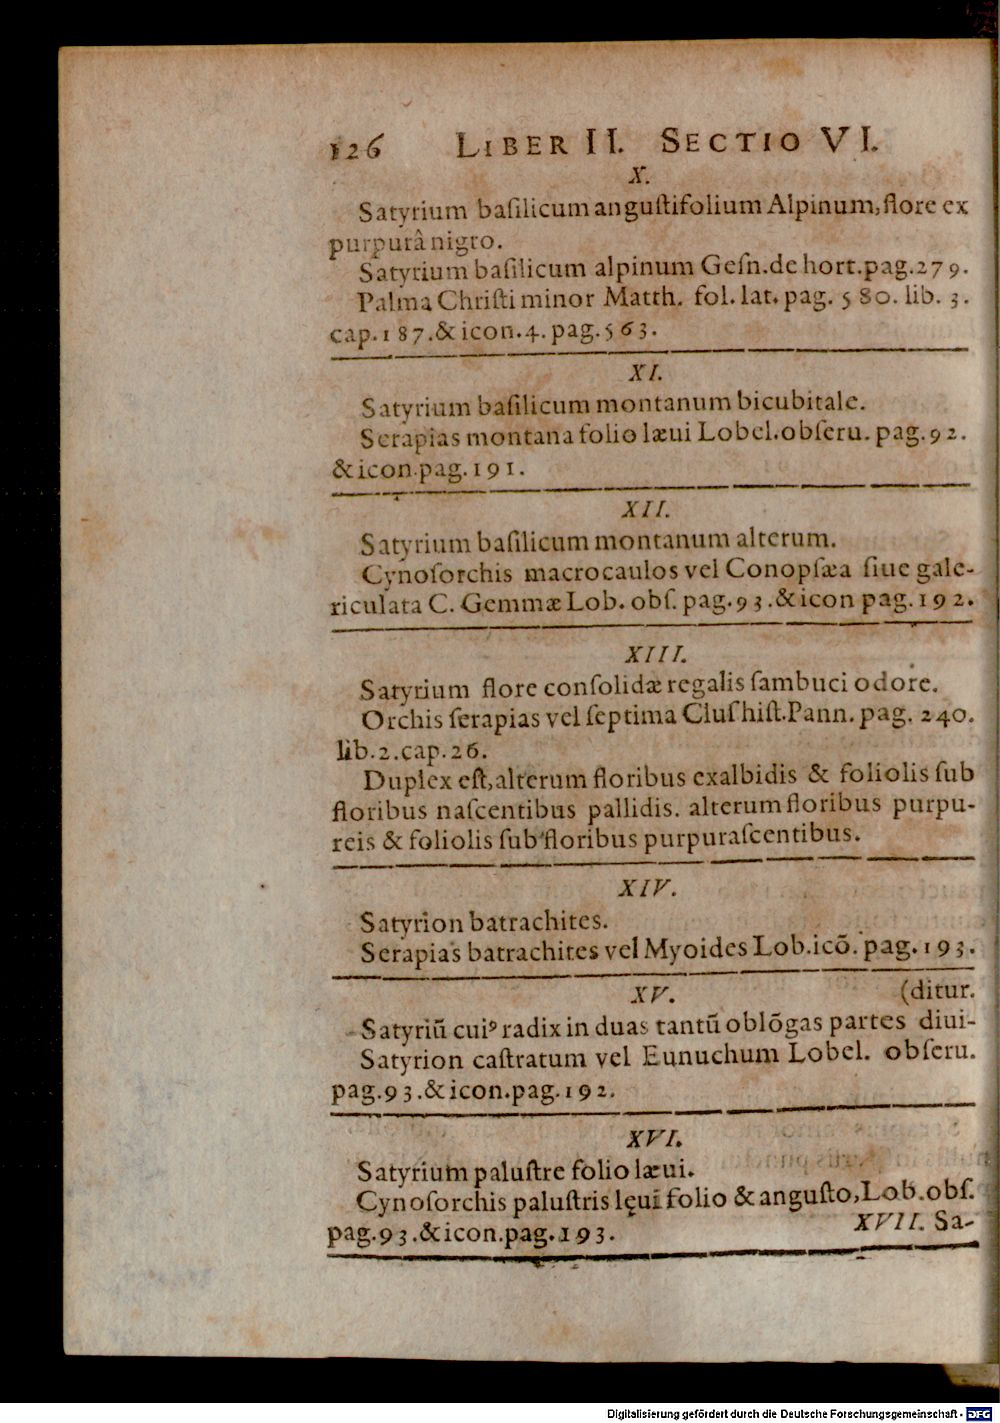 126 LIBER II. SECTIO VI.
X.
Satyrium baſilicum anguſtifolium Alpinum, flore ex
purpurâ nigro.
Satyrium baſilicum alpinum Geſn. de hort. pag. 279.
Palma Chriſti minor Matth. fol. lat. pag. 580. lib. 3.
cap. 187. & icon. 4. pag. 563.
XI.
Satyrium baſilicum montanum bicubitale.
Serapias montana folio læui Lobel. obſeru. pag. 92.
& icon. pag. 191.
XII.
Satyrium baſilicum montanum alterum.
Cynoſorchis macrocaulos vel Conopſæa ſiue gale-
riculata C. Gemmæ Lob. obſ. pag. 93. & icon pag. 192.
XIII.
Satyrium flore conſolidæ regalis ſambuci odore.
Orchis ſerapias vel ſeptima Cluſ hiſt. Pann. pag. 240.
lib. 2. cap. 26.
Duplex eſt, alterum floribus exalbidis & foliolis ſub
floribus naſcentibus pallidis. alterum floribus purpu-
reis & foliolis ſub floribus purpuraſcentibus.
XIV.
Satyrion batrachites.
Serapias batrachites vel Myoides Lob. icõ. pag. 193.
XV. (ditur.
Satyriũ cuiꝰ radix in duas tantũ oblõgas partes diui-
Satyrion caſtratum vel Eunuchum Lobel. obſeru.
pag. 93. & icon. pag. 192.
XVI.
Satyrium paluſtre folio læui.
Cynoſorchis paluſtris lęui folio & anguſto, Lob. obſ.
pag. 93. & icon. pag. 193.
XVII. Sa-
Digitalisierung gefördert durch die Deutsche Forschungsgemeinschaft - DFG